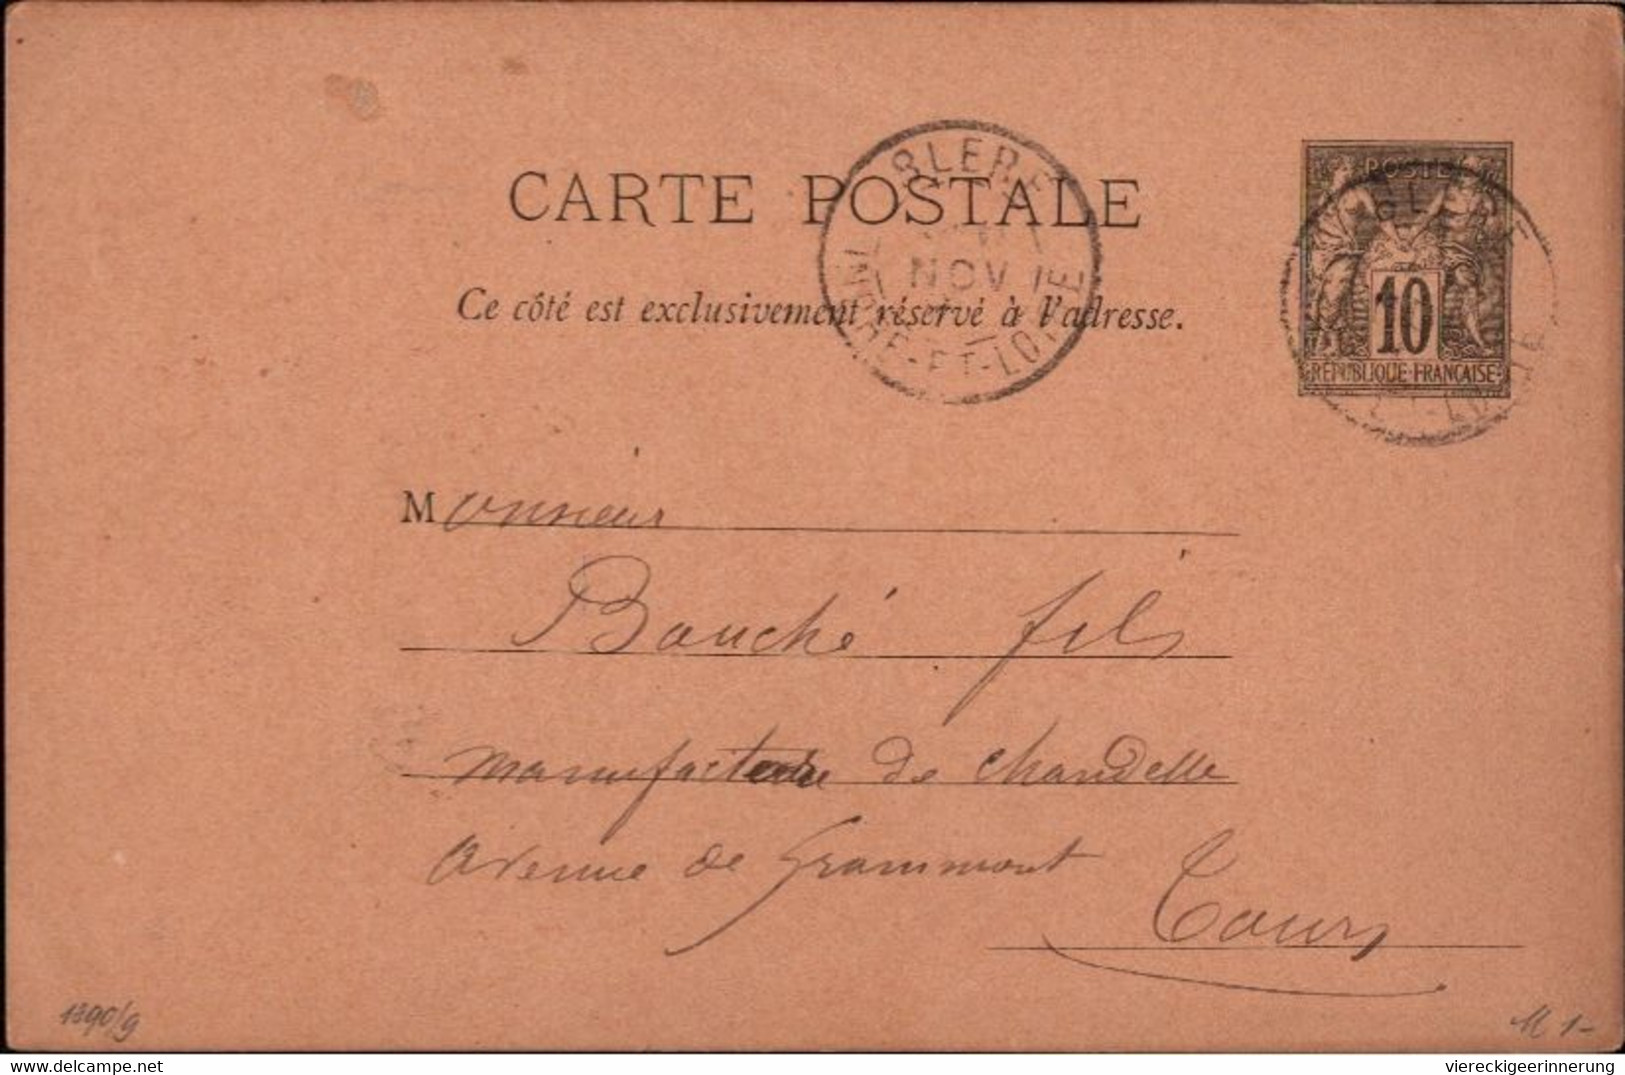 BLERÉ
NOV
INDRE-ET-LOIRE
POSTE
10
RÉPUBLIQUE FRANÇAISE
CARTE POSTALE
Ce côté est exclusivement réservé à l'adresse.
Monsieur
Bouché fils
manufacture de chandelle
Avenue de Grammont
Tours
1390/9
M 1-
delcampe.net
viereckigeerinnerung